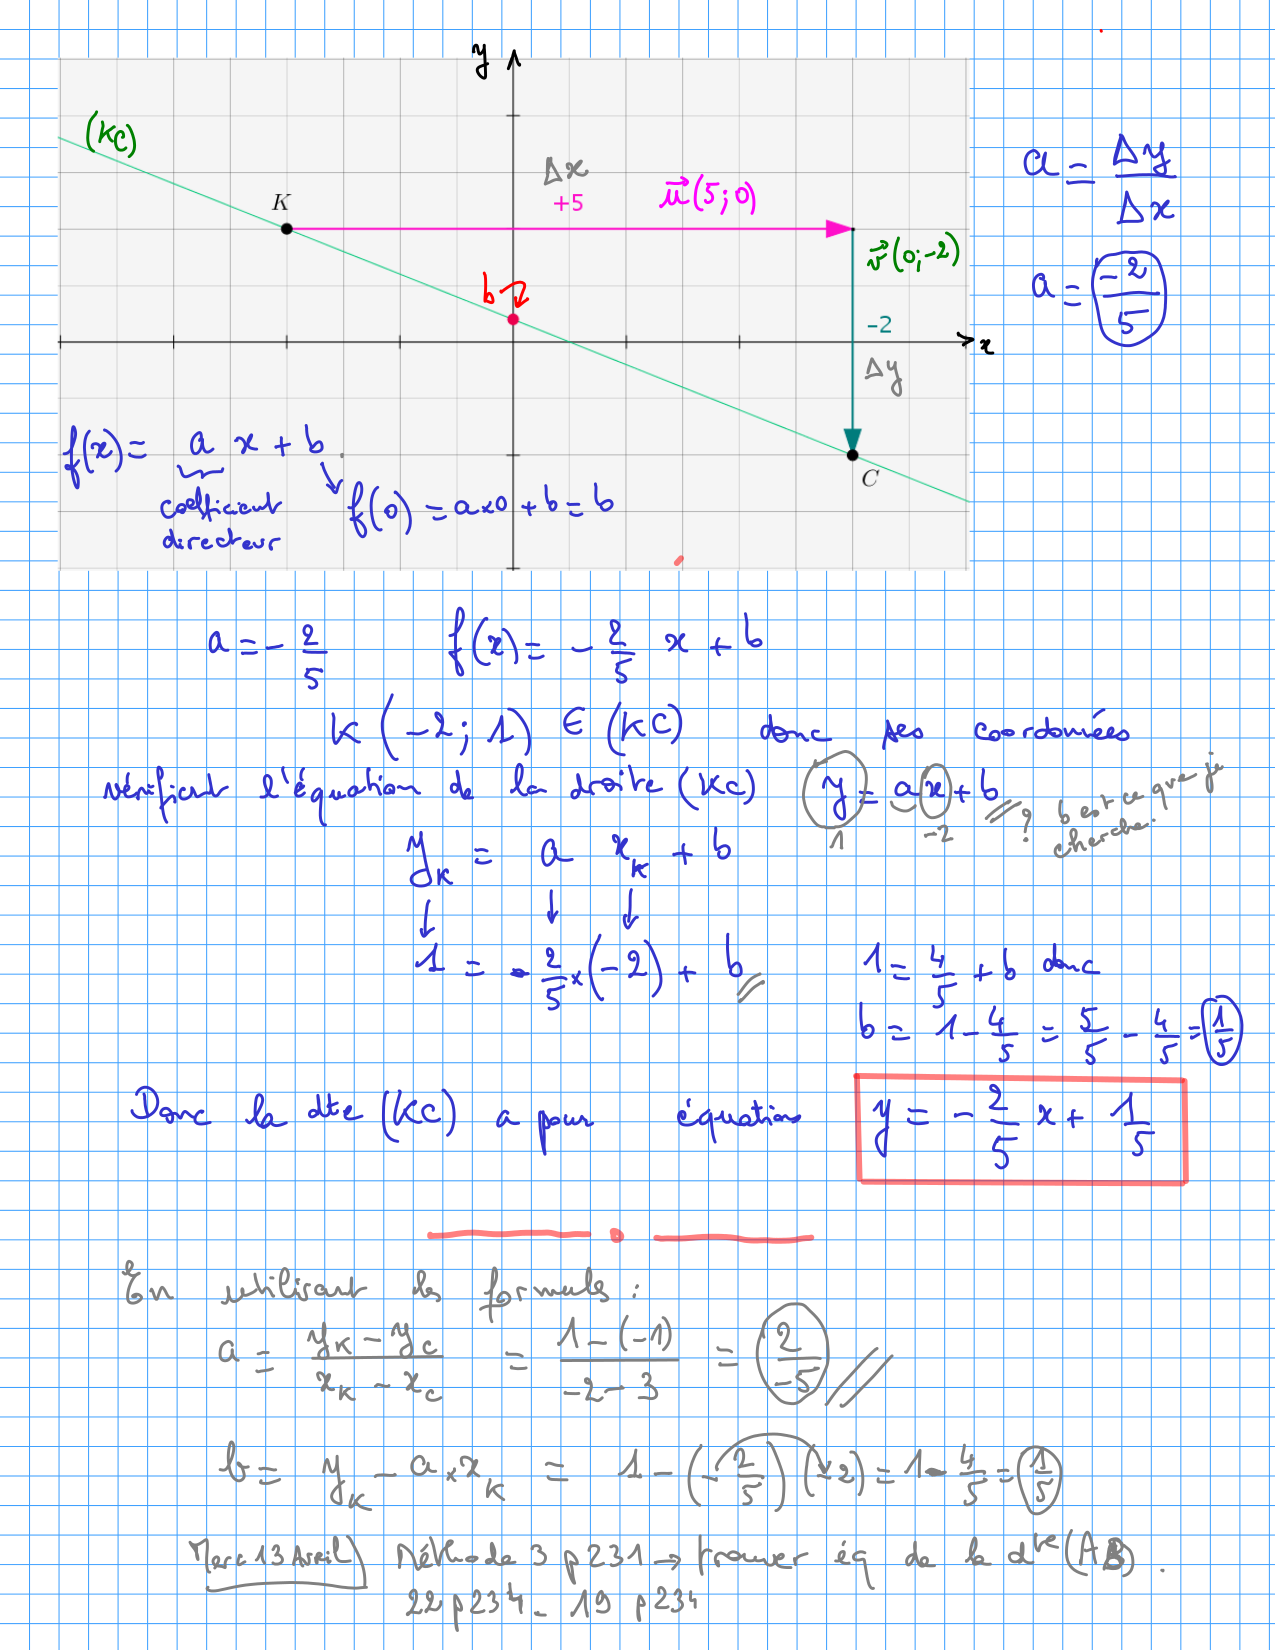 y
(KC)
Δx
K
+5
u⃗(5;0)
a = Δy/Δx
v⃗(0;-2)
b
a = -2/5
-2
x
Δy
f(x) = a x + b
C
coefficient directeur
f(0) = a×0 + b = b
a = - 2/5    f(x) = - 2/5 x + b
K (-2; 1) ∈ (KC) donc ses coordonnées
vérifient l'équation de la droite (KC) y = ax + b
1 -2 ? b est ce que je cherche.
y_K = a x_K + b
↓ ↓ ↓
1 = - 2/5 × (-2) + b
1 = 4/5 + b donc
b = 1 - 4/5 = 5/5 - 4/5 = 1/5
Donc la dte (KC) a pour équation y = - 2/5 x + 1/5
En utilisant les formules :
a = (y_K - y_C)/(x_K - x_C) = (1-(-1))/(-2-3) = 2/-5
b = y_K - a × x_K = 1 - (-2/5)(-2) = 1 - 4/5 = 1/5
Merc 13 Avril Méthode 3 p 231 → trouver éq de la dte (AB).
22 p 234 - 19 p 234